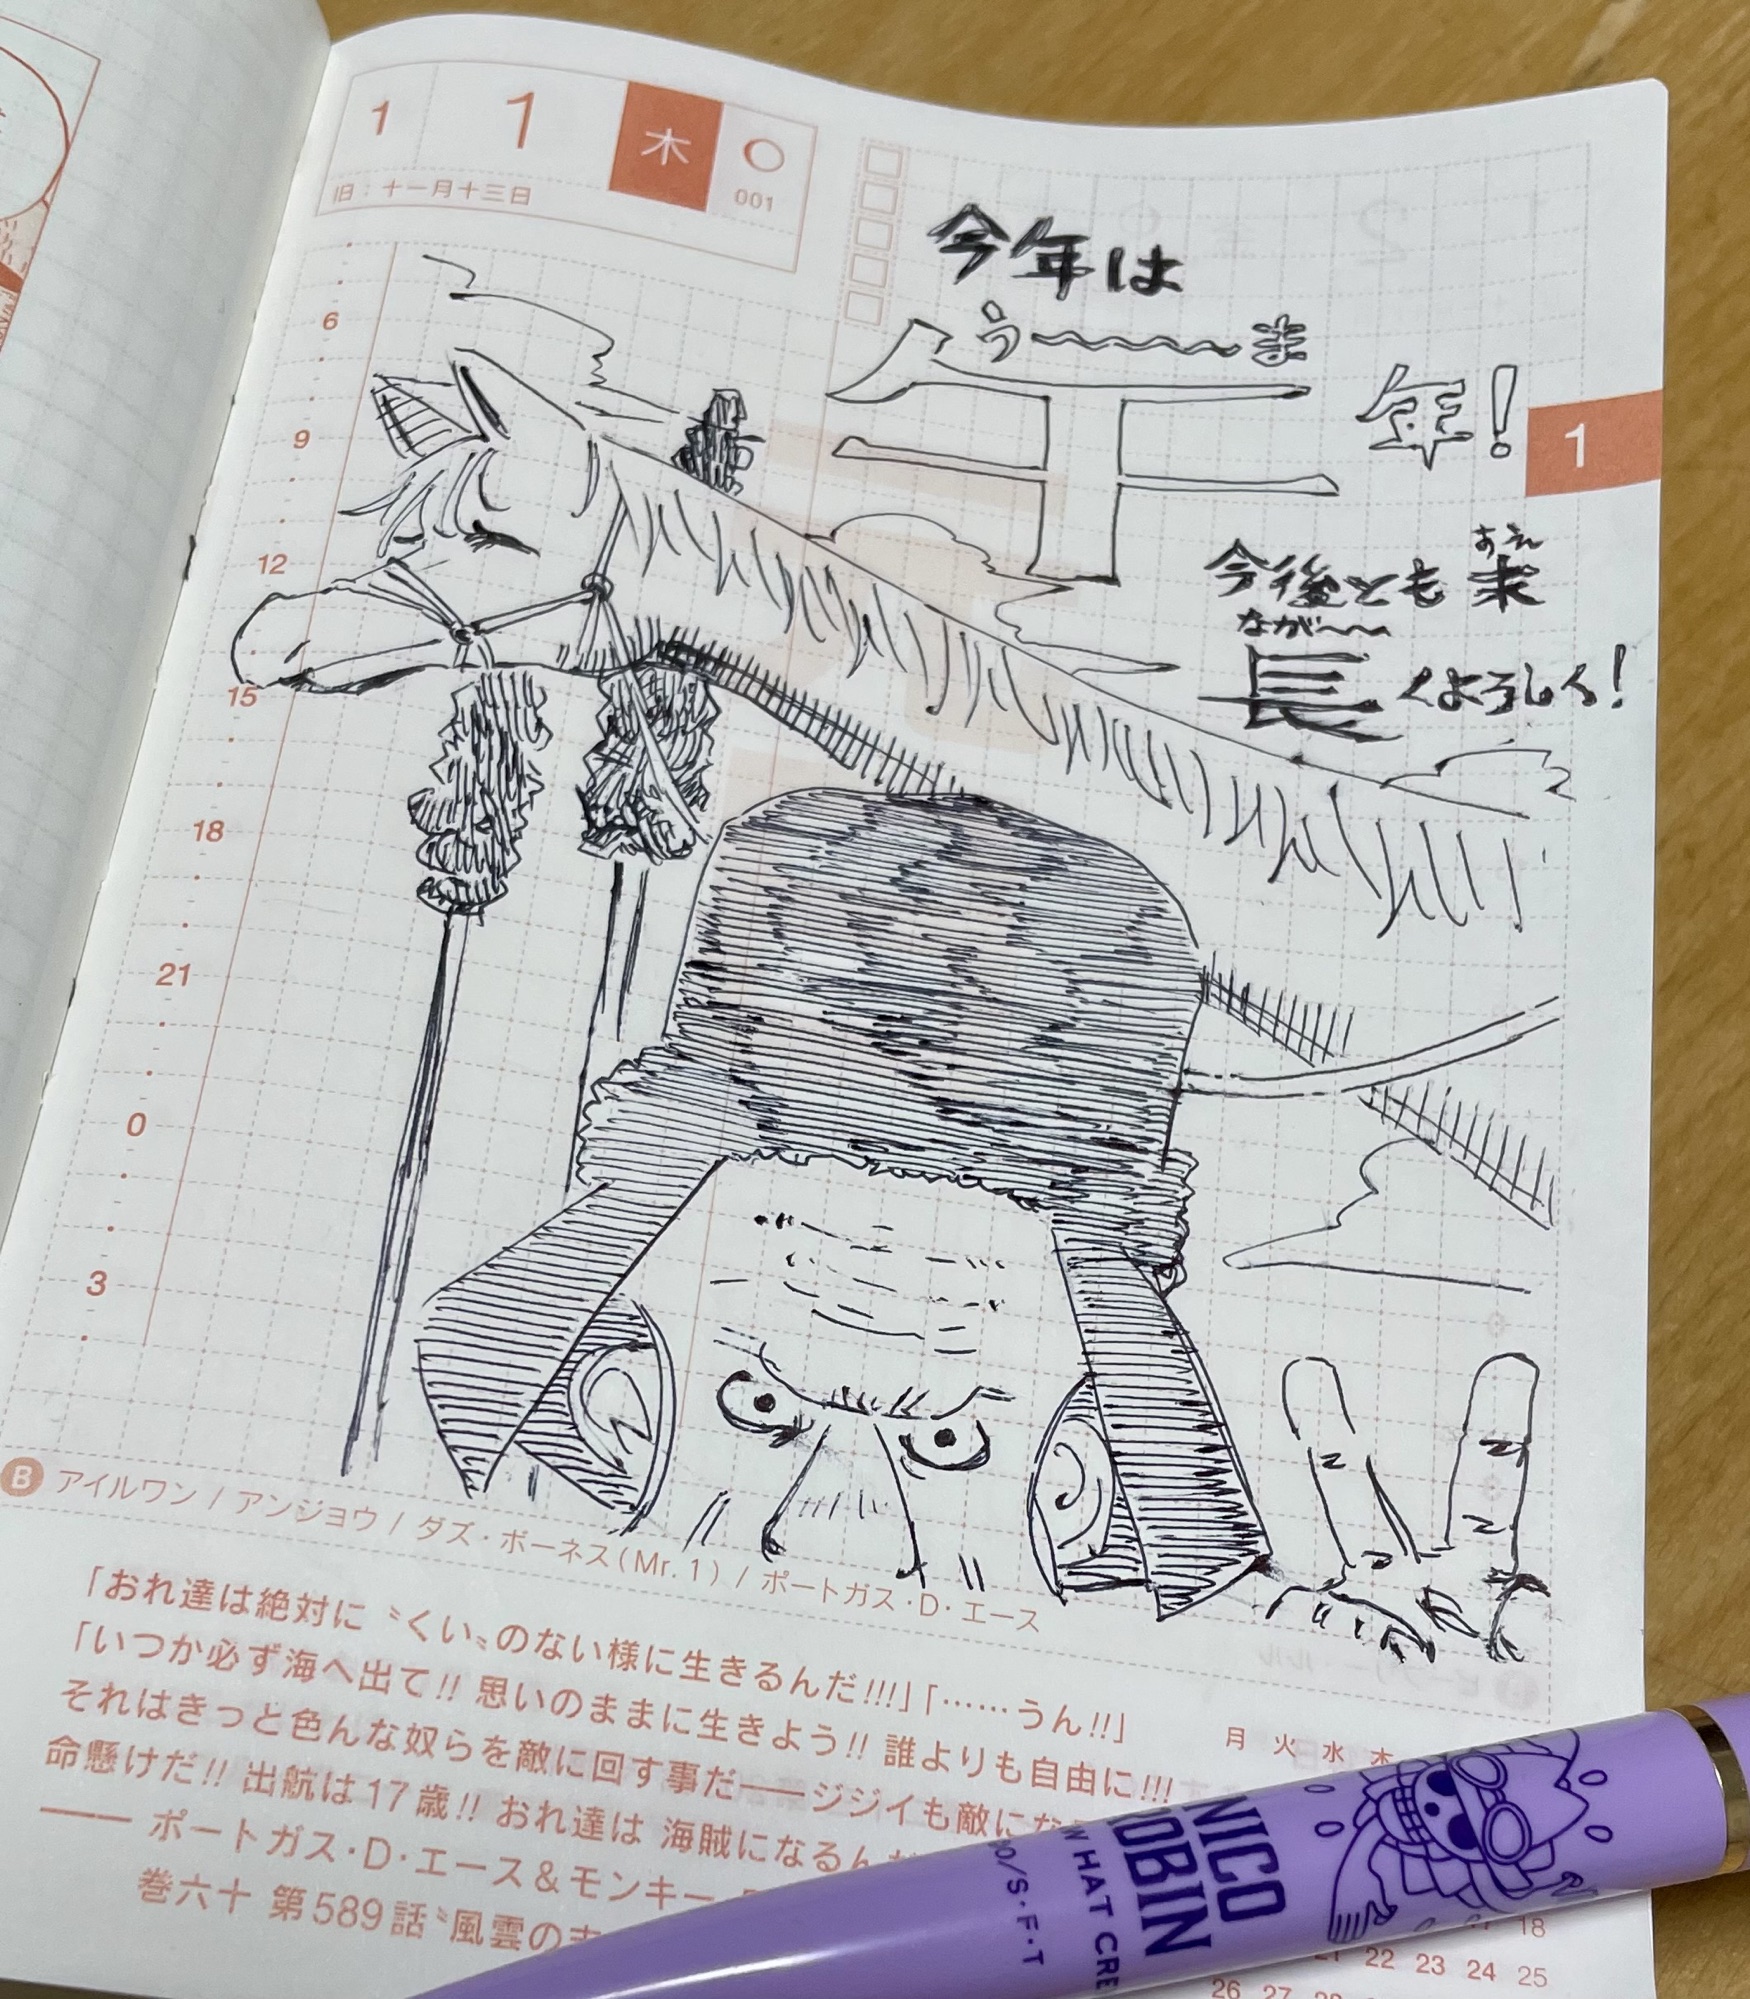 1 1 木
旧：十一月十三日 001
今年は
う〜〜〜〜ま
午年！
1
今後とも末
すえ
なが〜〜
長くよろしく！
6
9
12
15
18
21
0
3
B アイルワン / アンジョウ / ダズ・ボーネス(Mr.1) / ポートガス・D・エース
「おれ達は絶対に〝くい〟のない様に生きるんだ!!!」「……うん!!」
「いつか必ず海へ出て!! 思いのままに生きよう!! 誰よりも自由に!!!
それはきっと色んな奴らを敵に回す事だ――ジジイも敵にな
命懸けだ!! 出航は17歳!! おれ達は 海賊になるん
―― ポートガス・D・エース＆モンキー
巻六十 第589話〝風雲の
月 火 水 木
18
21 22 23 24 25
26 27 28
NICO
ROBIN
WHAT CRE
/S・F・T